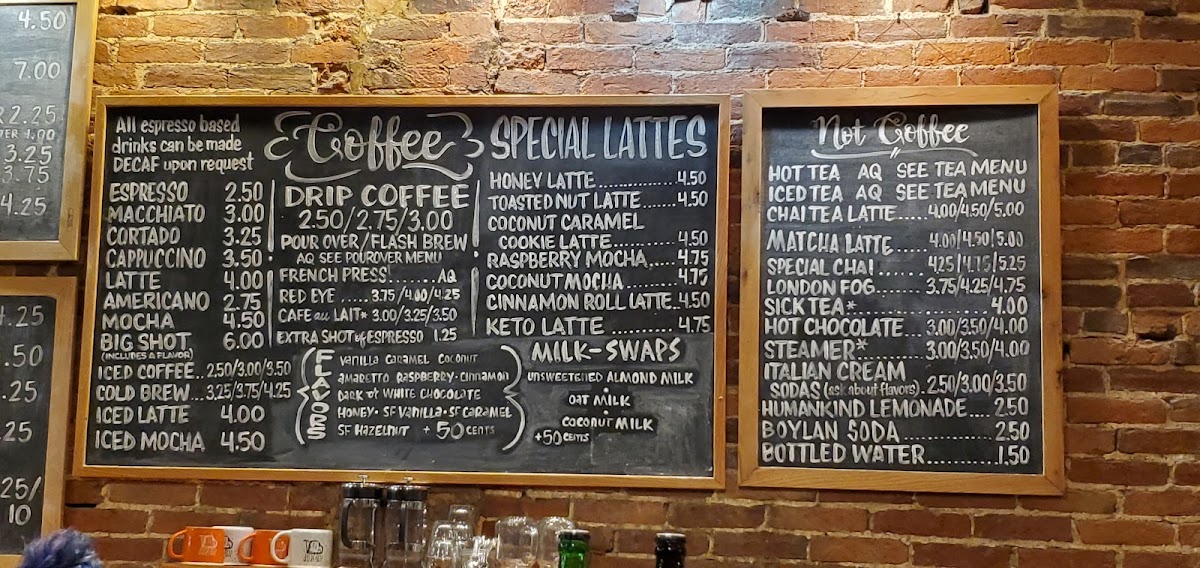 4.50
7.00
2.25
1.00
3.25
3.75
4.25
4.25
.50
.25
.25
25/
10
All espresso based
drinks can be made
DECAF upon request
ESPRESSO 2.50
MACCHIATO 3.00
CORTADO 3.25
CAPPUCCINO 3.50
LATTE 4.00
AMERICANO 2.75
MOCHA 4.50
BIG SHOT 6.00
(INCLUDES A FLAVOR)
ICED COFFEE.. 2.50/3.00/3.50
COLD BREW...3.25/3.75/4.25
ICED LATTE 4.00
ICED MOCHA 4.50
Coffee
DRIP COFFEE
2.50/2.75/3.00
POUR OVER/FLASH BREW
AQ SEE POUROVER MENU
FRENCH PRESS.......AQ
RED EYE ..... 3.75/4.00/4.25
CAFE au LAIT* 3.00/3.25/3.50
EXTRA SHOT of ESPRESSO 1.25
FLAVORS
VANILLA CARAMEL COCONUT
AMARETTO RASPBERRY · CINNAMON
DARK or WHITE CHOCOLATE
HONEY · SF VANILLA · SF CARAMEL
SF HAZELNUT + 50 CENTS
SPECIAL LATTES
HONEY LATTE...............4.50
TOASTED NUT LATTE......4.50
COCONUT CARAMEL
COOKIE LATTE...........4.50
RASPBERRY MOCHA.....4.75
COCONUT MOCHA.........4.75
CINNAMON ROLL LATTE..4.50
KETO LATTE ..........4.75
MILK-SWAPS
UNSWEETENED ALMOND MILK
·
OAT MILK
·
COCONUT MILK
+50 CENTS
Not Coffee
HOT TEA AQ SEE TEA MENU
ICED TEA AQ SEE TEA MENU
CHAI TEA LATTE..... 4.00/4.50/5.00
MATCHA LATTE..... 4.00/4.50/5.00
SPECIAL CHAI....... 4.25/4.75/5.25
LONDON FOG........ 3.75/4.25/4.75
SICK TEA*................4.00
HOT CHOCOLATE...3.00/3.50/4.00
STEAMER*.........3.00/3.50/4.00
ITALIAN CREAM
SODAS (ask about flavors). 2.50/3.00/3.50
HUMANKIND LEMONADE.... 2.50
BOYLAN SODA..............2.50
BOTTLED WATER..........1.50